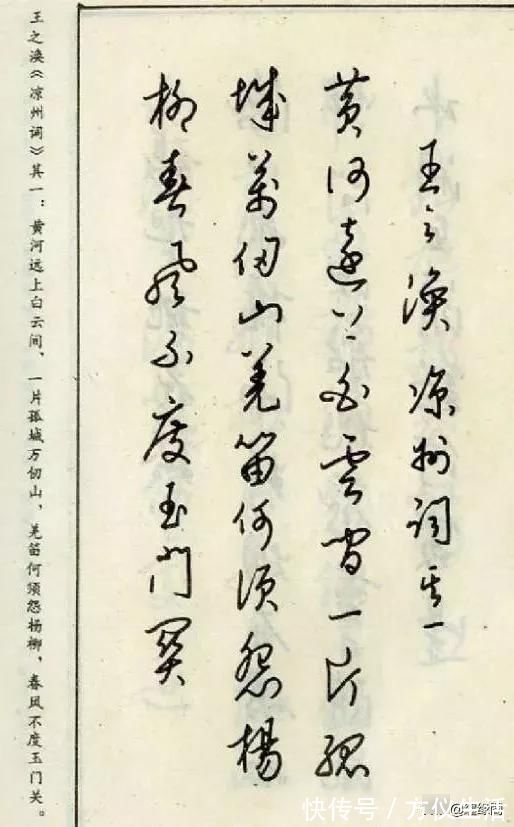 王之涣凉州词其一
黄河遠上白雲间一片孤
城萬仞山羌笛何须怨楊
柳春风不度玉门关
王之涣《凉州词》其一：黄河远上白云间，一片孤城万仞山，羌笛何须怨杨柳，春风不度玉门关。
快传号／方仪生活